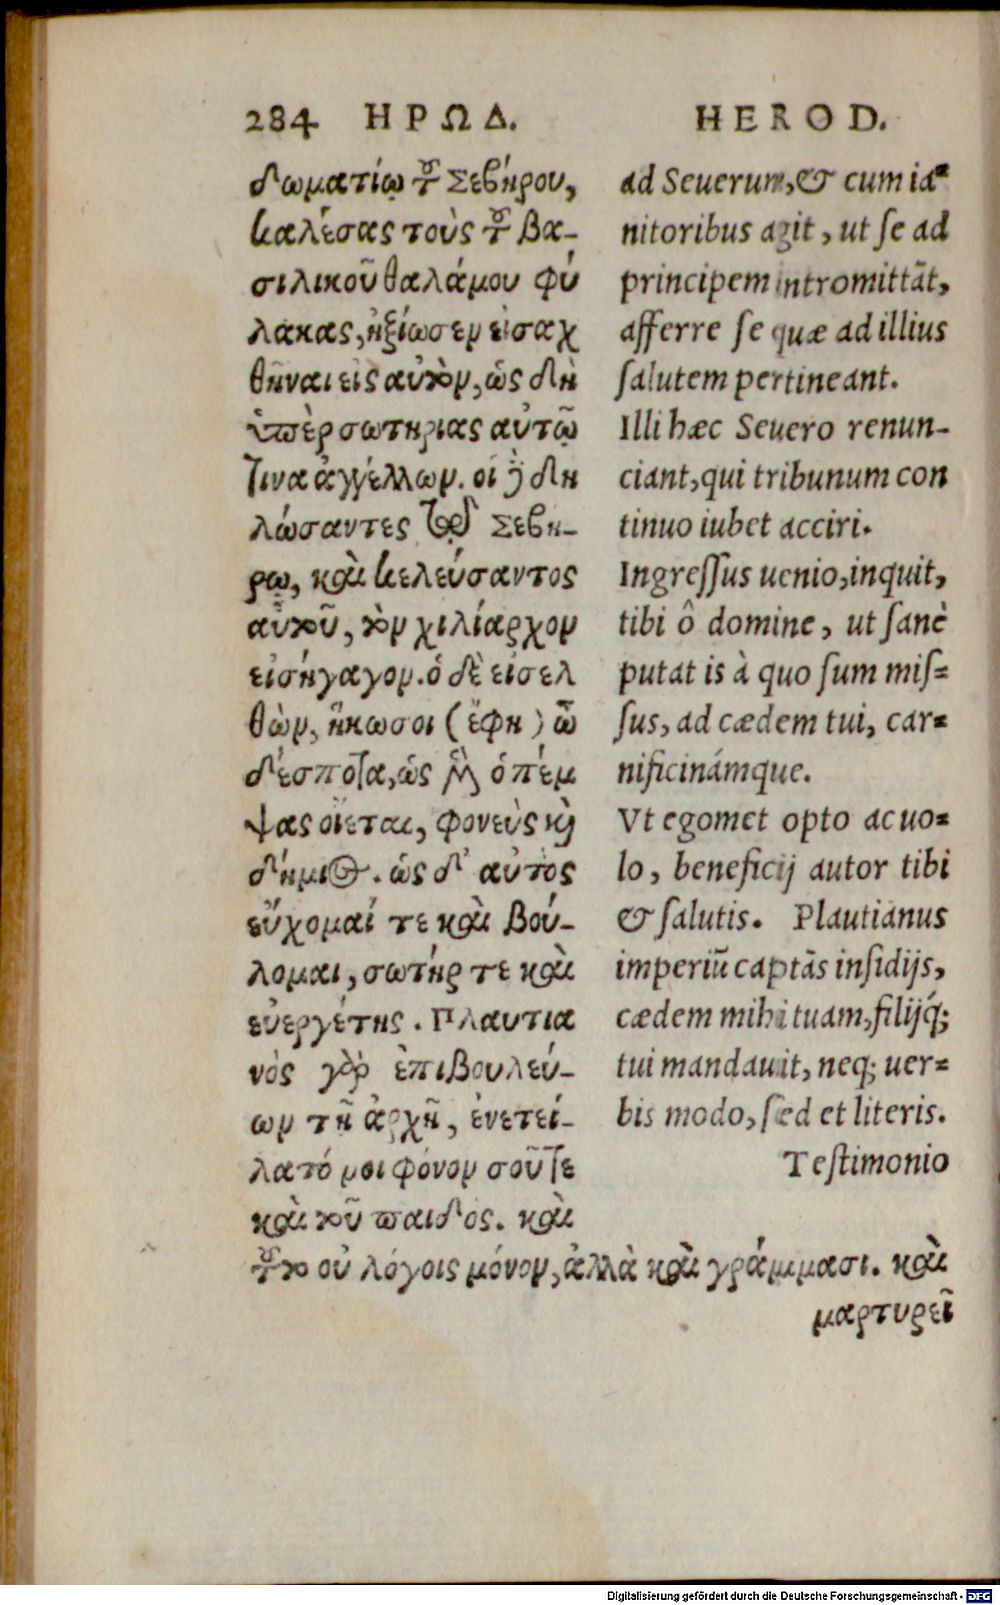 284 ΗΡΩΔ.
δωματίῳ τοῦ Σεβήρου,
καλέσας τοὺς τοῦ βα-
σιλικοῦ θαλάμου φύ
λακας, ἠξίωσεν εἰσαχ
θῆναι εἰς αὐτὸν, ὡς δὴ
ὑπὲρ σωτηρίας αὐτῷ
τινα ἀγγέλλων. οἱ δὲ δη
λώσαντες τῷ Σεβή-
ρῳ, καὶ κελεύσαντος
αὐτοῦ, τὸν χιλίαρχον
εἰσήγαγον. ὁ δὲ εἰσελ
θὼν, ἥκω σοι (ἔφη) ὦ
δέσποτα, ὡς μὲν ὁ πέμ
ψας οἴεται, φονεὺς καὶ
δήμιος. ὡς δ' αὐτὸς
εὔχομαί τε καὶ βού-
λομαι, σωτήρ τε καὶ
εὐεργέτης. Πλαυτια
νὸς γὰρ ἐπιβουλεύ-
ων τῇ ἀρχῇ, ἐνετεί-
λατό μοι φόνον σοῦ τε
καὶ τοῦ παιδός. καὶ
τοῦτο οὐ λόγοις μόνον, ἀλλὰ καὶ γράμμασι. καὶ
μαρτυρεῖ
HEROD.
ad Seuerum, & cum ia=
nitoribus agit, ut se ad
principem intromittãt,
afferre se quæ ad illius
salutem pertineant.
Illi hæc Seuero renun-
ciant, qui tribunum con
tinuo iubet acciri.
Ingressus uenio, inquit,
tibi ô domine, ut sanè
putat is à quo sum mis=
sus, ad cædem tui, car=
nificinámque.
Vt egomet opto ac uo=
lo, beneficij autor tibi
& salutis. Plautianus
imperiũ captãs insidijs,
cædem mihi tuam, filijq́;
tui mandauit, neq; uer=
bis modo, sed et literis.
Testimonio
Digitalisierung gefördert durch die Deutsche Forschungsgemeinschaft - DFG